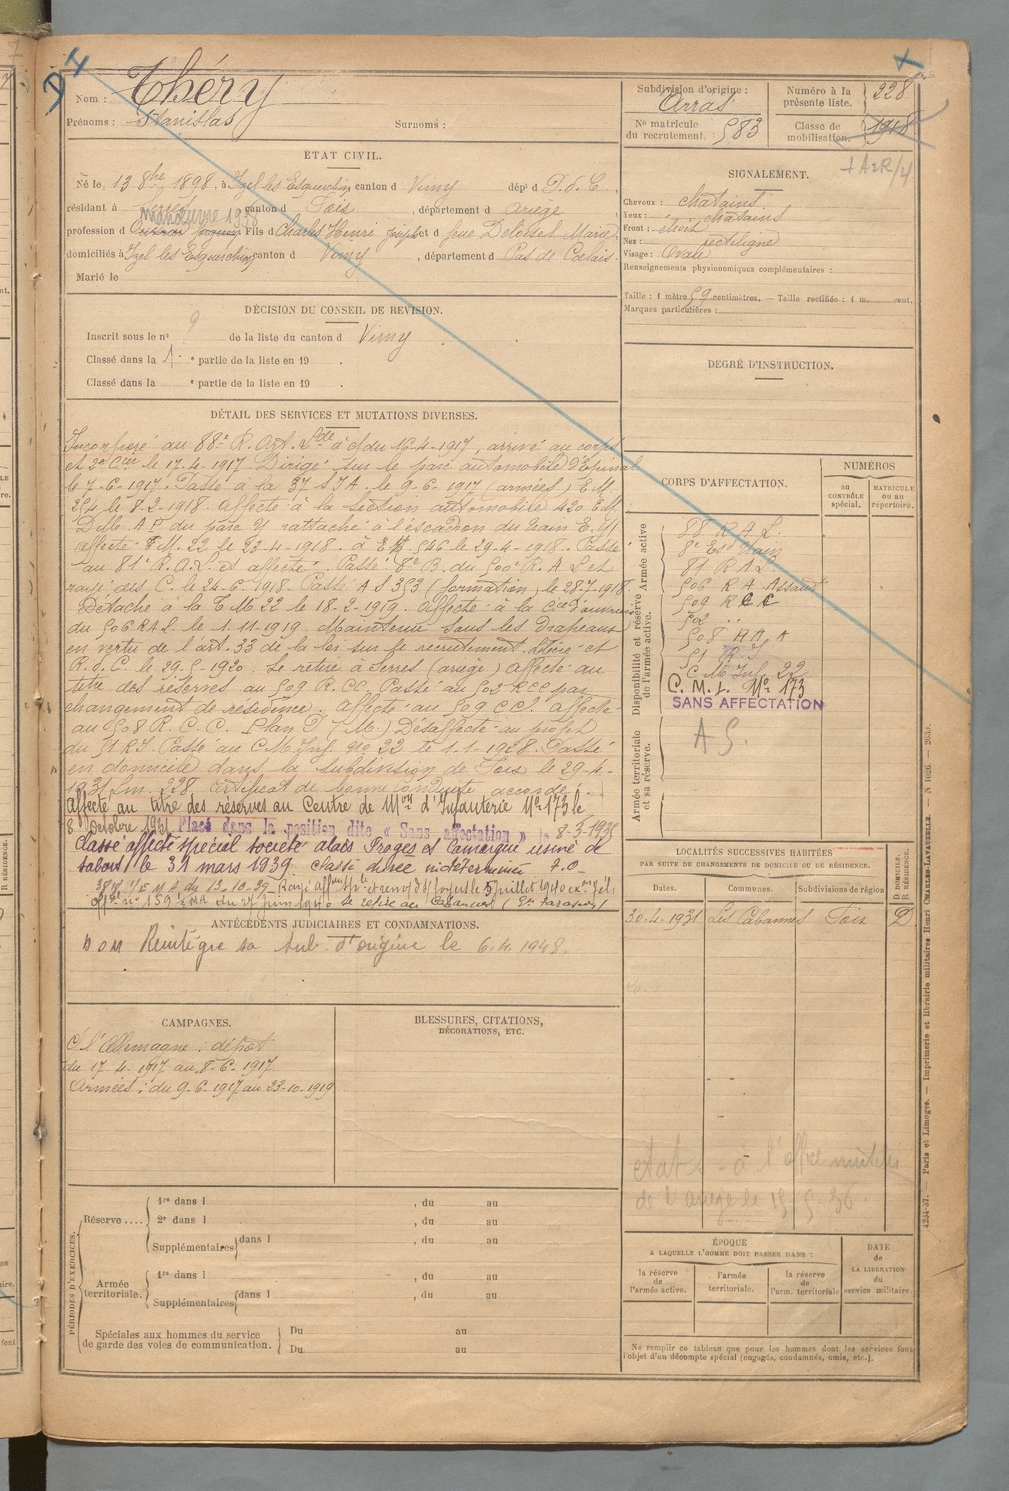 Nom : Théry
Prénoms : Stanislas Surnoms :
ÉTAT CIVIL.
Né le 13 8bre 1898, à Izel les Esquerchin canton d Vimy dépt d P.d.C.,
résidant à Serres, canton d Foix, département d Ariège
manœuvre 1936
profession d Fils d Charles Henri Joseph et d feue Marie
domiciliés à Izel les Esquerchin canton d Vimy, département d Pas de Calais.
Marié le
DÉCISION DU CONSEIL DE REVISION.
Inscrit sous le n° 9 de la liste du canton d Vimy
Classé dans la 1e partie de la liste en 19 .
Classé dans la e partie de la liste en 19 .
DÉTAIL DES SERVICES ET MUTATIONS DIVERSES.
Incorporé au 88e R. Art. Lde à c/ du 16-4-1917, arrivé au corps
et 2e Cer le 17-4-1917. Dirigé sur le parc automobile d'Epinal
le 7-6-1917. Passé à la 37 S T A. le 9-6-1917 (armées) E.M.
254 le 8-2-1918. Affecté à la section automobile 420 E.M.
du parc Y rattaché à l'escadron du train
affecté T.M. 22 le 23-4-1918. à 546 le 29-4-1918. Passé
au 81e R.A.L. et affecté. Passé 8e B. du 500e R.A.L et
rayé des C. le 24-6-1918. Passé A S 353 (formation) le 28-7-1918
Détaché à la T M 22 le 18-2-1919. Affecté à la Cie
du 506 RAS. le 1.11.1919. Maintenu sous les Drapeaux
en vertu de l'art. 33 de la loi sur le recrutement. et
R.d.C. le 29-5-1920. Se retire à Serres (ariège) Affecté au
titre des réserves au 509 R.CC. Passé au 502 RCC par
changement de résidence. Affecté au 509 CCl. Affecté
au 508 R.C.C. Plan (M.) Désaffecté au profit
du 51 R.I. Passé au C.M. Inf. No 22 le 1.1.1928. Passé
en domicile dans la subdivision de Foix le 29-4-
1931 certificat de bonne conduite accordé.
Affecté au titre des réserves au Centre de Mon d'Infanterie No 173 le
8 Octobre 1931. Placé dans la position dite « Sans affectation » le 8-3-1935
Classé affecté spécial société alais Froges et Camargue usine de
Sabart le 31 mars 1939. classé durée indéterminée 7.0-
du 13-10-39 Rayé aff. le 5 juillet 1940
no 159 du 27 juin 1940 se retire au Cabannes
ANTÉCÉDENTS JUDICIAIRES ET CONDAMNATIONS.
D O M Réintègre sa sub. d'origine le 6.4.1948.
CAMPAGNES.
C l'Allemagne : dépôt
du 17-4-1917 au 8-6-1917
Armées : du 9-6-1917 au 23-10-1919
BLESSURES, CITATIONS,
DÉCORATIONS, ETC.
PÉRIODES D'EXERCICES.
Réserve....
1re dans l , du au
2e dans l , du au
Supplémentaires dans l , du au
Armée territoriale.
1re dans l , du au
Supplémentaires dans l , du au
Spéciales aux hommes du service
de garde des voies de communication.
Du au
Du au
Subdivision d'origine :
Arras
Numéro à la
présente liste. 228
N° matricule
du recrutement. 583
Classe de
mobilisation. 1918
SIGNALEMENT.
Cheveux : chatains
Yeux : chatains
Front : étroit
Nez : rectiligne
Visage : Ovale
Renseignements physionomiques complémentaires :
Taille : 1 mètre 59 centimètres. — Taille rectifiée : 1 m. cent.
Marques particulières :
DEGRÉ D'INSTRUCTION.
CORPS D'AFFECTATION.
NUMÉROS
au
CONTRÔLE
spécial.
MATRICULE
ou au
répertoire.
Disponibilité et réserve Armée active
de l'armée active.
Armée territoriale
et sa réserve.
88 R A L.
8e Esd train
81 R A L
506 R A Assaut
509 R C C
502 "
508
51 R I
C M Inf 22
C. M. I. No 173
SANS AFFECTATION
A S.
LOCALITÉS SUCCESSIVES HABITÉES
PAR SUITE DE CHANGEMENTS DE DOMICILE OU DE RÉSIDENCE.
D DOMICILE.
R RÉSIDENCE.
Dates. Communes. Subdivisions de région
30-4-1931 Les Cabannes Foix D.
de l'ariège le
ÉPOQUE
A LAQUELLE L'HOMME DOIT PASSER DANS :
la réserve
de
l'armée active.
l'armée
territoriale.
la réserve
de
l'arm. territoriale
DATE
de
LA LIBÉRATION
du
service militaire.
Ne remplir ce tableau que pour les hommes dont les services font
l'objet d'un décompte spécial (engagés, condamnés, omis, etc.).
4234-37. — Paris et Limoges. — Imprimerie et librairie militaires Henri CHARLES-LAVAUZELLE.